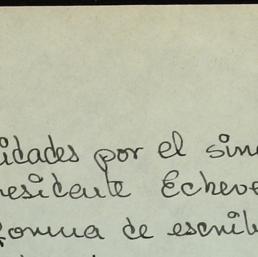 idades por el sin
residente Echeve
forma de escrib